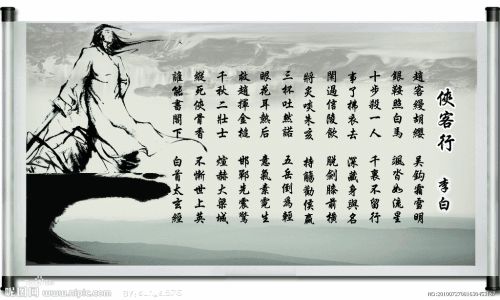 俠客行 李白
趙客縵胡纓 吳鉤霜雪明
銀鞍照白馬 颯沓如流星
十步殺一人 千裏不留行
事了拂衣去 深藏身與名
閑過信陵飲 脫劍膝前橫
將炙啖朱亥 持觴勸侯嬴
三杯吐然諾 五岳倒為輕
眼花耳熱后 意氣素霓生
救趙揮金槌 邯鄲先震驚
千秋二壯士 煊赫大梁城
縱死俠骨香 不慚世上英
誰能書閣下 白首太玄經
昵图网
www.nipic.com